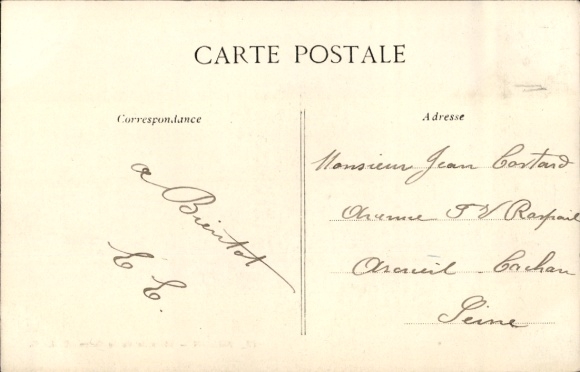 CARTE POSTALE
Correspondance
a Bientot
E E.
Adresse
Monsieur Jean Costard
Avenue F V Raspail
Arcueil Cachan
Seine